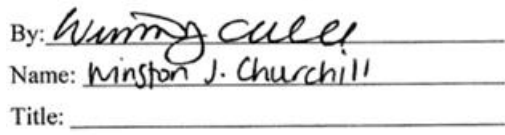 By:
Name: Winston J. Churchill
Title: